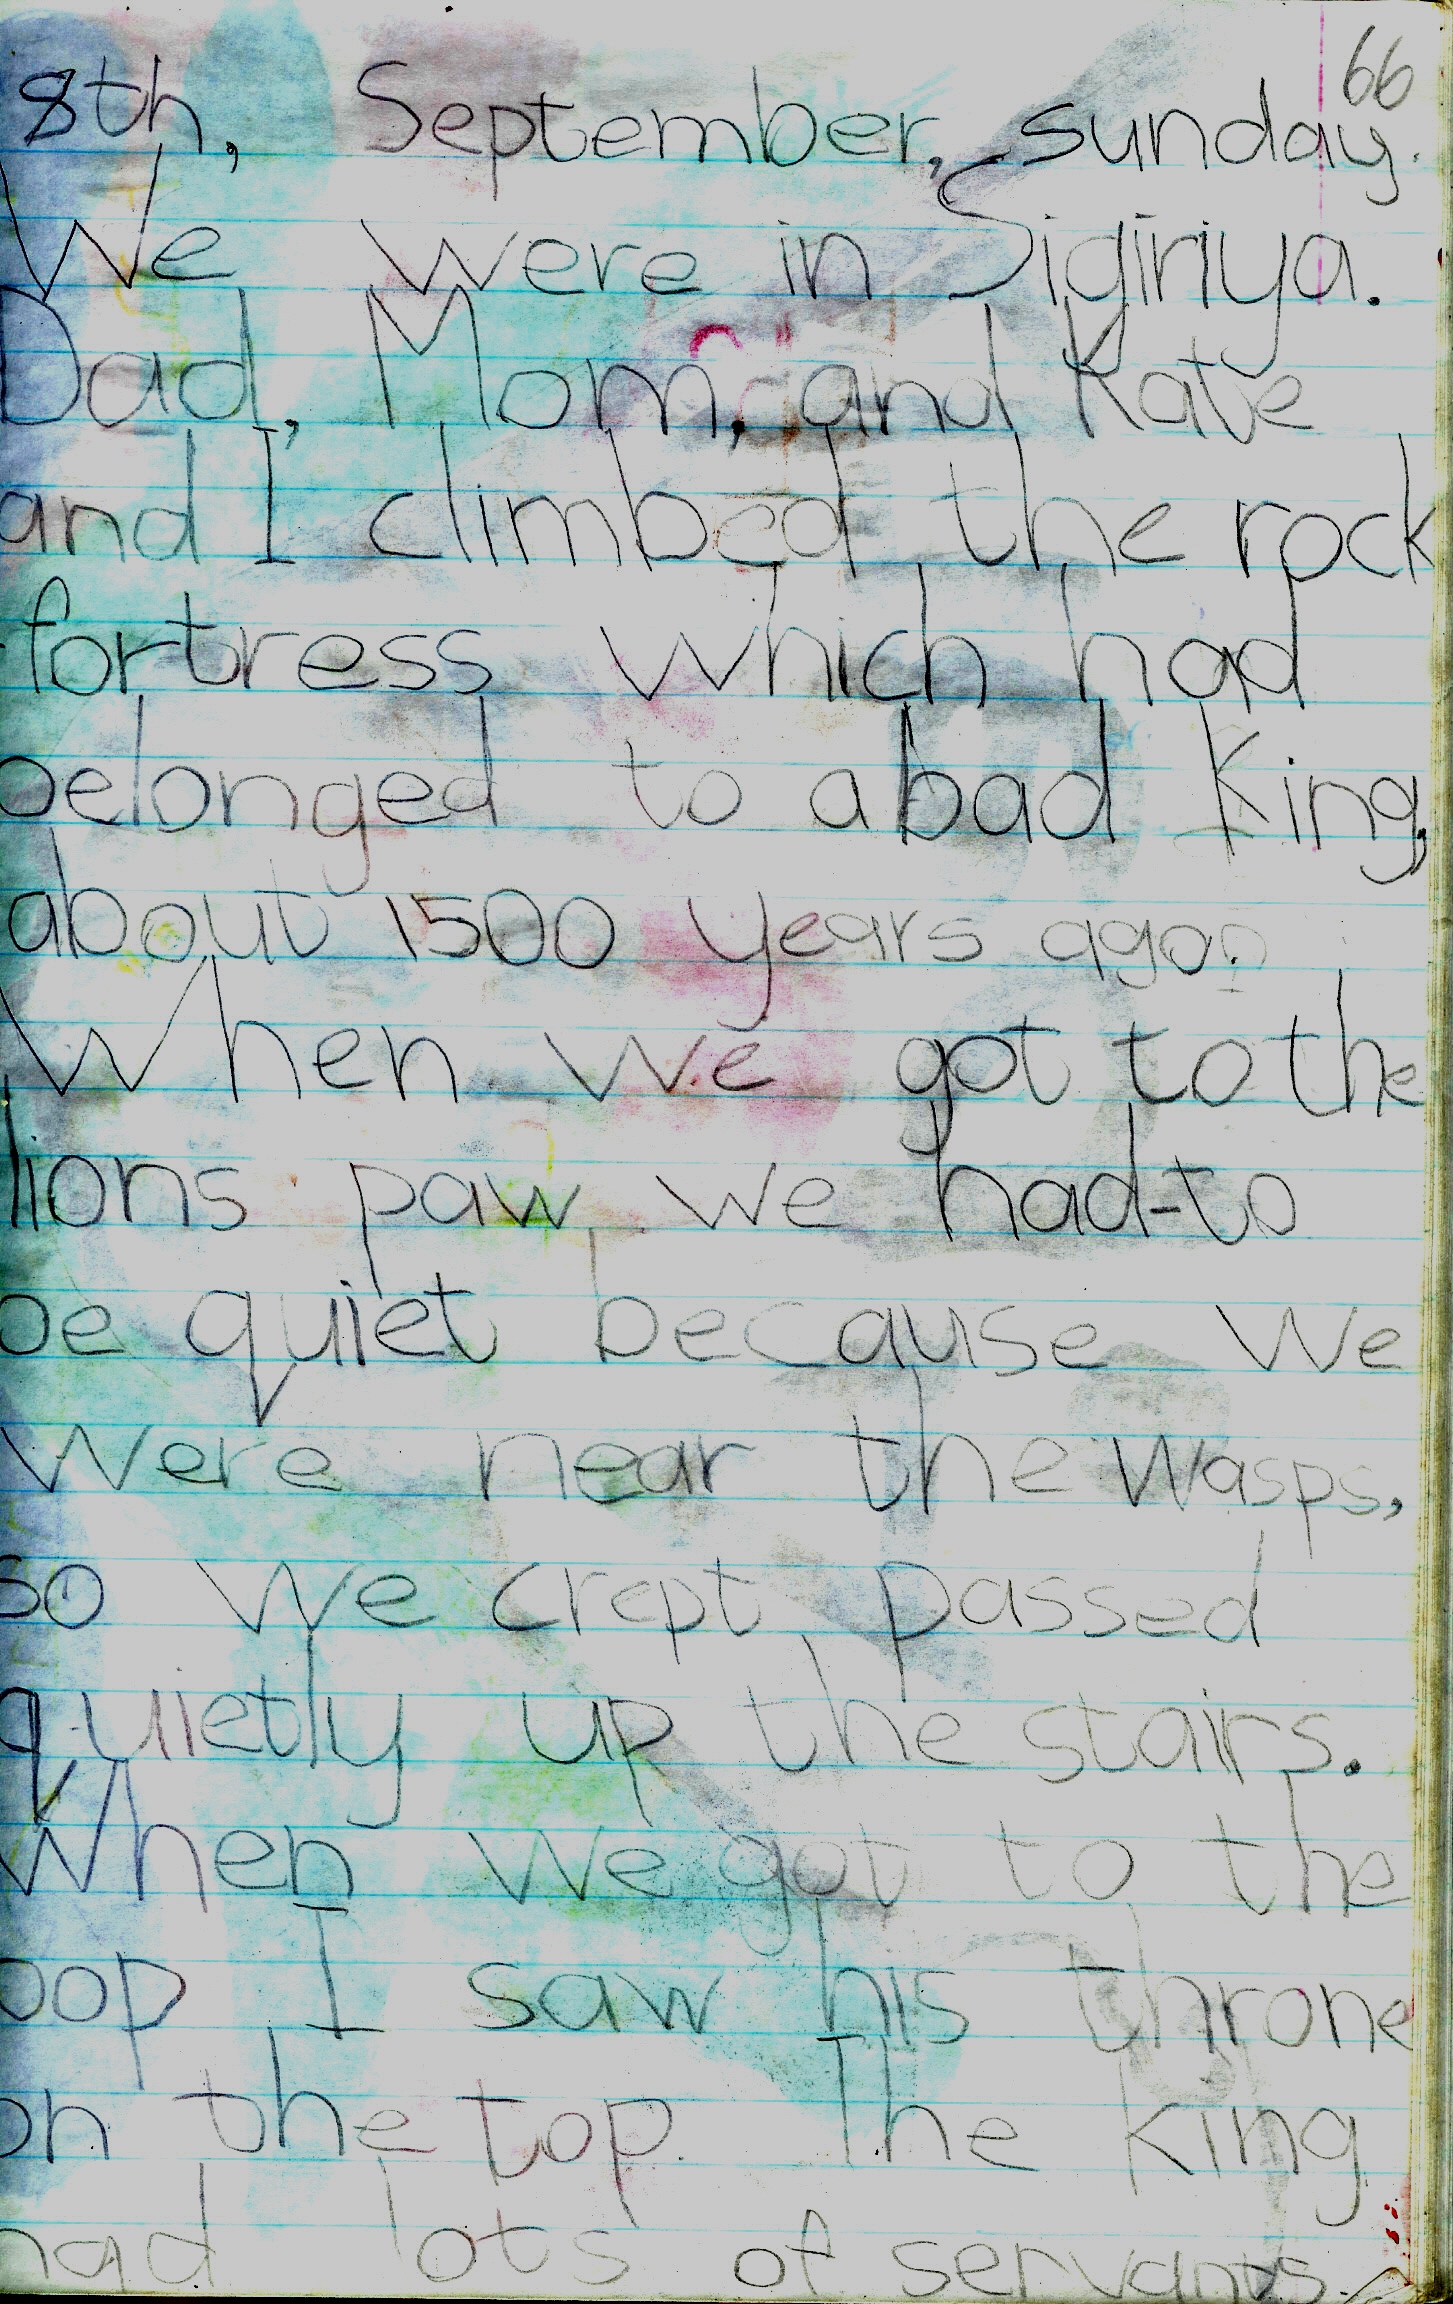 66
8th, September, sunday.
We were in Sigiriya.
Dad, Mom, and Kate
and I climbed the rock
fortress which had
belonged to a bad King,
about 1500 years ago.
When we got to the
lions paw we had-to
be quiet because we
were near the wasps,
so we crept passed
quietly up the stairs.
When we got to the
top I saw his throne
on the top. The king
had lots of servants.